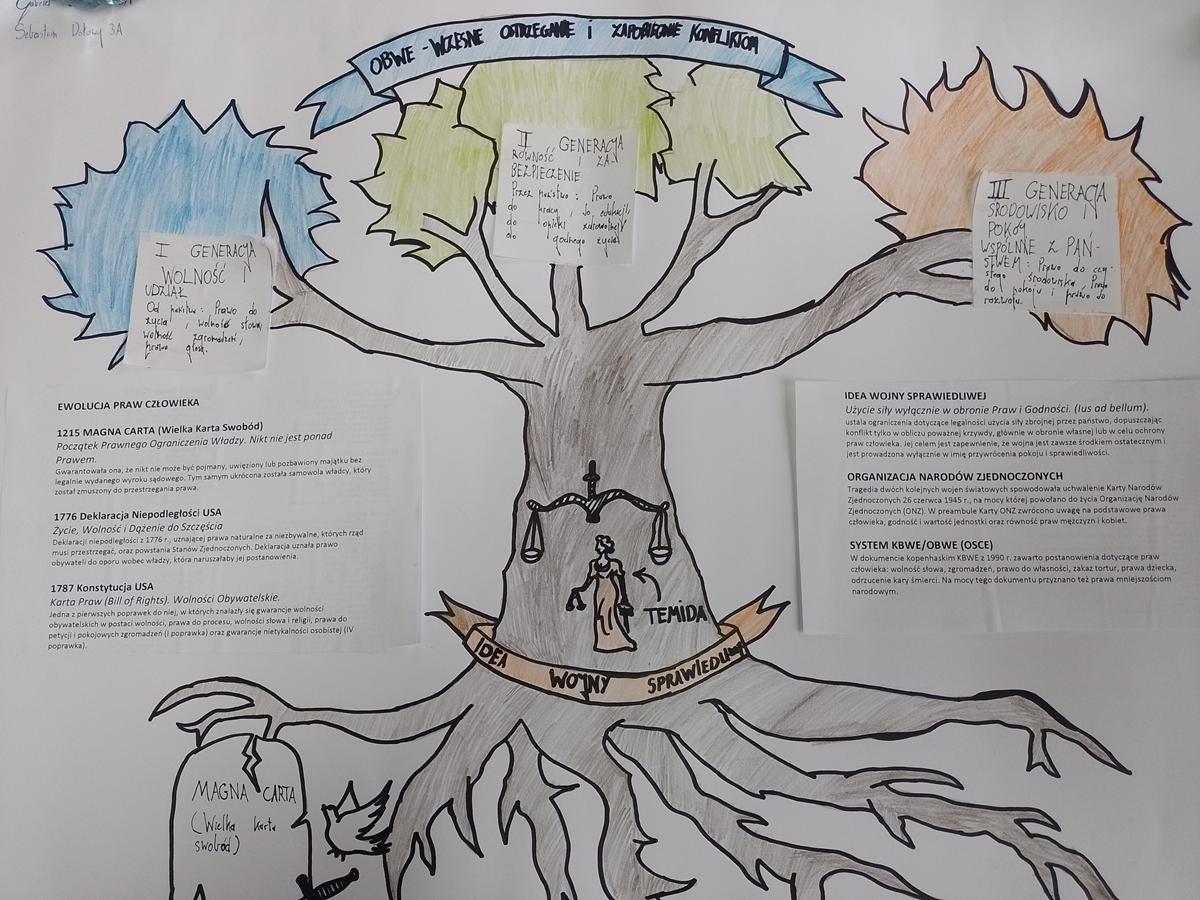 Gabriel
Sebastian Dotowy 3A
OBWE - WCZESNE OSTRZEGANIE i ZAPOBIEGANIE KONFLIKTOM
I GENERACJA
WOLNOŚĆ I
UDZIAŁ
Od państwa: Prawo do
życia, wolność słowa,
wolność zgromadzeń,
prawo głosu.
II GENERACJA
RÓWNOŚĆ I ZA-
BEZPIECZENIE
Przez państwo: Prawo
do pracy, do edukacji,
do opieki zdrowotnej
do godnego życia
III GENERACJA
ŚRODOWISKO I
POKÓJ
WSPÓLNIE Z PAŃ-
STWEM: Prawo do czy-
stego środowiska, Prawo
do pokoju i prawo do
rozwoju.
EWOLUCJA PRAW CZŁOWIEKA
1215 MAGNA CARTA (Wielka Karta Swobód)
Początek Prawnego Ograniczenia Władzy. Nikt nie jest ponad
Prawem.
Gwarantowała ona, że nikt nie może być pojmany, uwięziony lub pozbawiony majątku bez
legalnie wydanego wyroku sądowego. Tym samym ukrócona została samowola władcy, który
został zmuszony do przestrzegania prawa.
1776 Deklaracja Niepodległości USA
Życie, Wolność i Dążenie do Szczęścia
Deklaracji niepodległości z 1776 r., uznającej prawa naturalne za niezbywalne, których rząd
musi przestrzegać, oraz powstania Stanów Zjednoczonych. Deklaracja uznała prawo
obywateli do oporu wobec władzy, która naruszałaby jej postanowienia.
1787 Konstytucja USA
Karta Praw (Bill of Rights). Wolności Obywatelskie.
Jedna z pierwszych poprawek do niej, w których znalazły się gwarancje wolności
obywatelskich w postaci wolności, prawa do procesu, wolności słowa i religii, prawa do
petycji i pokojowych zgromadzeń (I poprawka) oraz gwarancje nietykalności osobistej (IV
poprawka).
IDEA WOJNY SPRAWIEDLIWEJ
Użycie siły wyłącznie w obronie Praw i Godności. (Ius ad bellum).
ustala ograniczenia dotyczące legalności użycia siły zbrojnej przez państwo, dopuszczając
konflikt tylko w obliczu poważnej krzywdy, głównie w obronie własnej lub w celu ochrony
praw człowieka. Jej celem jest zapewnienie, że wojna jest zawsze środkiem ostatecznym i
jest prowadzona wyłącznie w imię przywrócenia pokoju i sprawiedliwości.
ORGANIZACJA NARODÓW ZJEDNOCZONYCH
Tragedia dwóch kolejnych wojen światowych spowodowała uchwalenie Karty Narodów
Zjednoczonych 26 czerwca 1945 r., na mocy której powołano do życia Organizację Narodów
Zjednoczonych (ONZ). W preambule Karty ONZ zwrócono uwagę na podstawowe prawa
człowieka, godność i wartość jednostki oraz równość praw mężczyzn i kobiet.
SYSTEM KBWE/OBWE (OSCE)
W dokumencie kopenhaskim KBWE z 1990 r. zawarto postanowienia dotyczące praw
człowieka: wolność słowa, zgromadzeń, prawo do własności, zakaz tortur, prawa dziecka,
odrzucenie kary śmierci. Na mocy tego dokumentu przyznano też prawa mniejszościom
narodowym.
TEMIDA
IDEA WOJNY SPRAWIEDLIWEJ
MAGNA CARTA
(Wielka Karta
swobód)